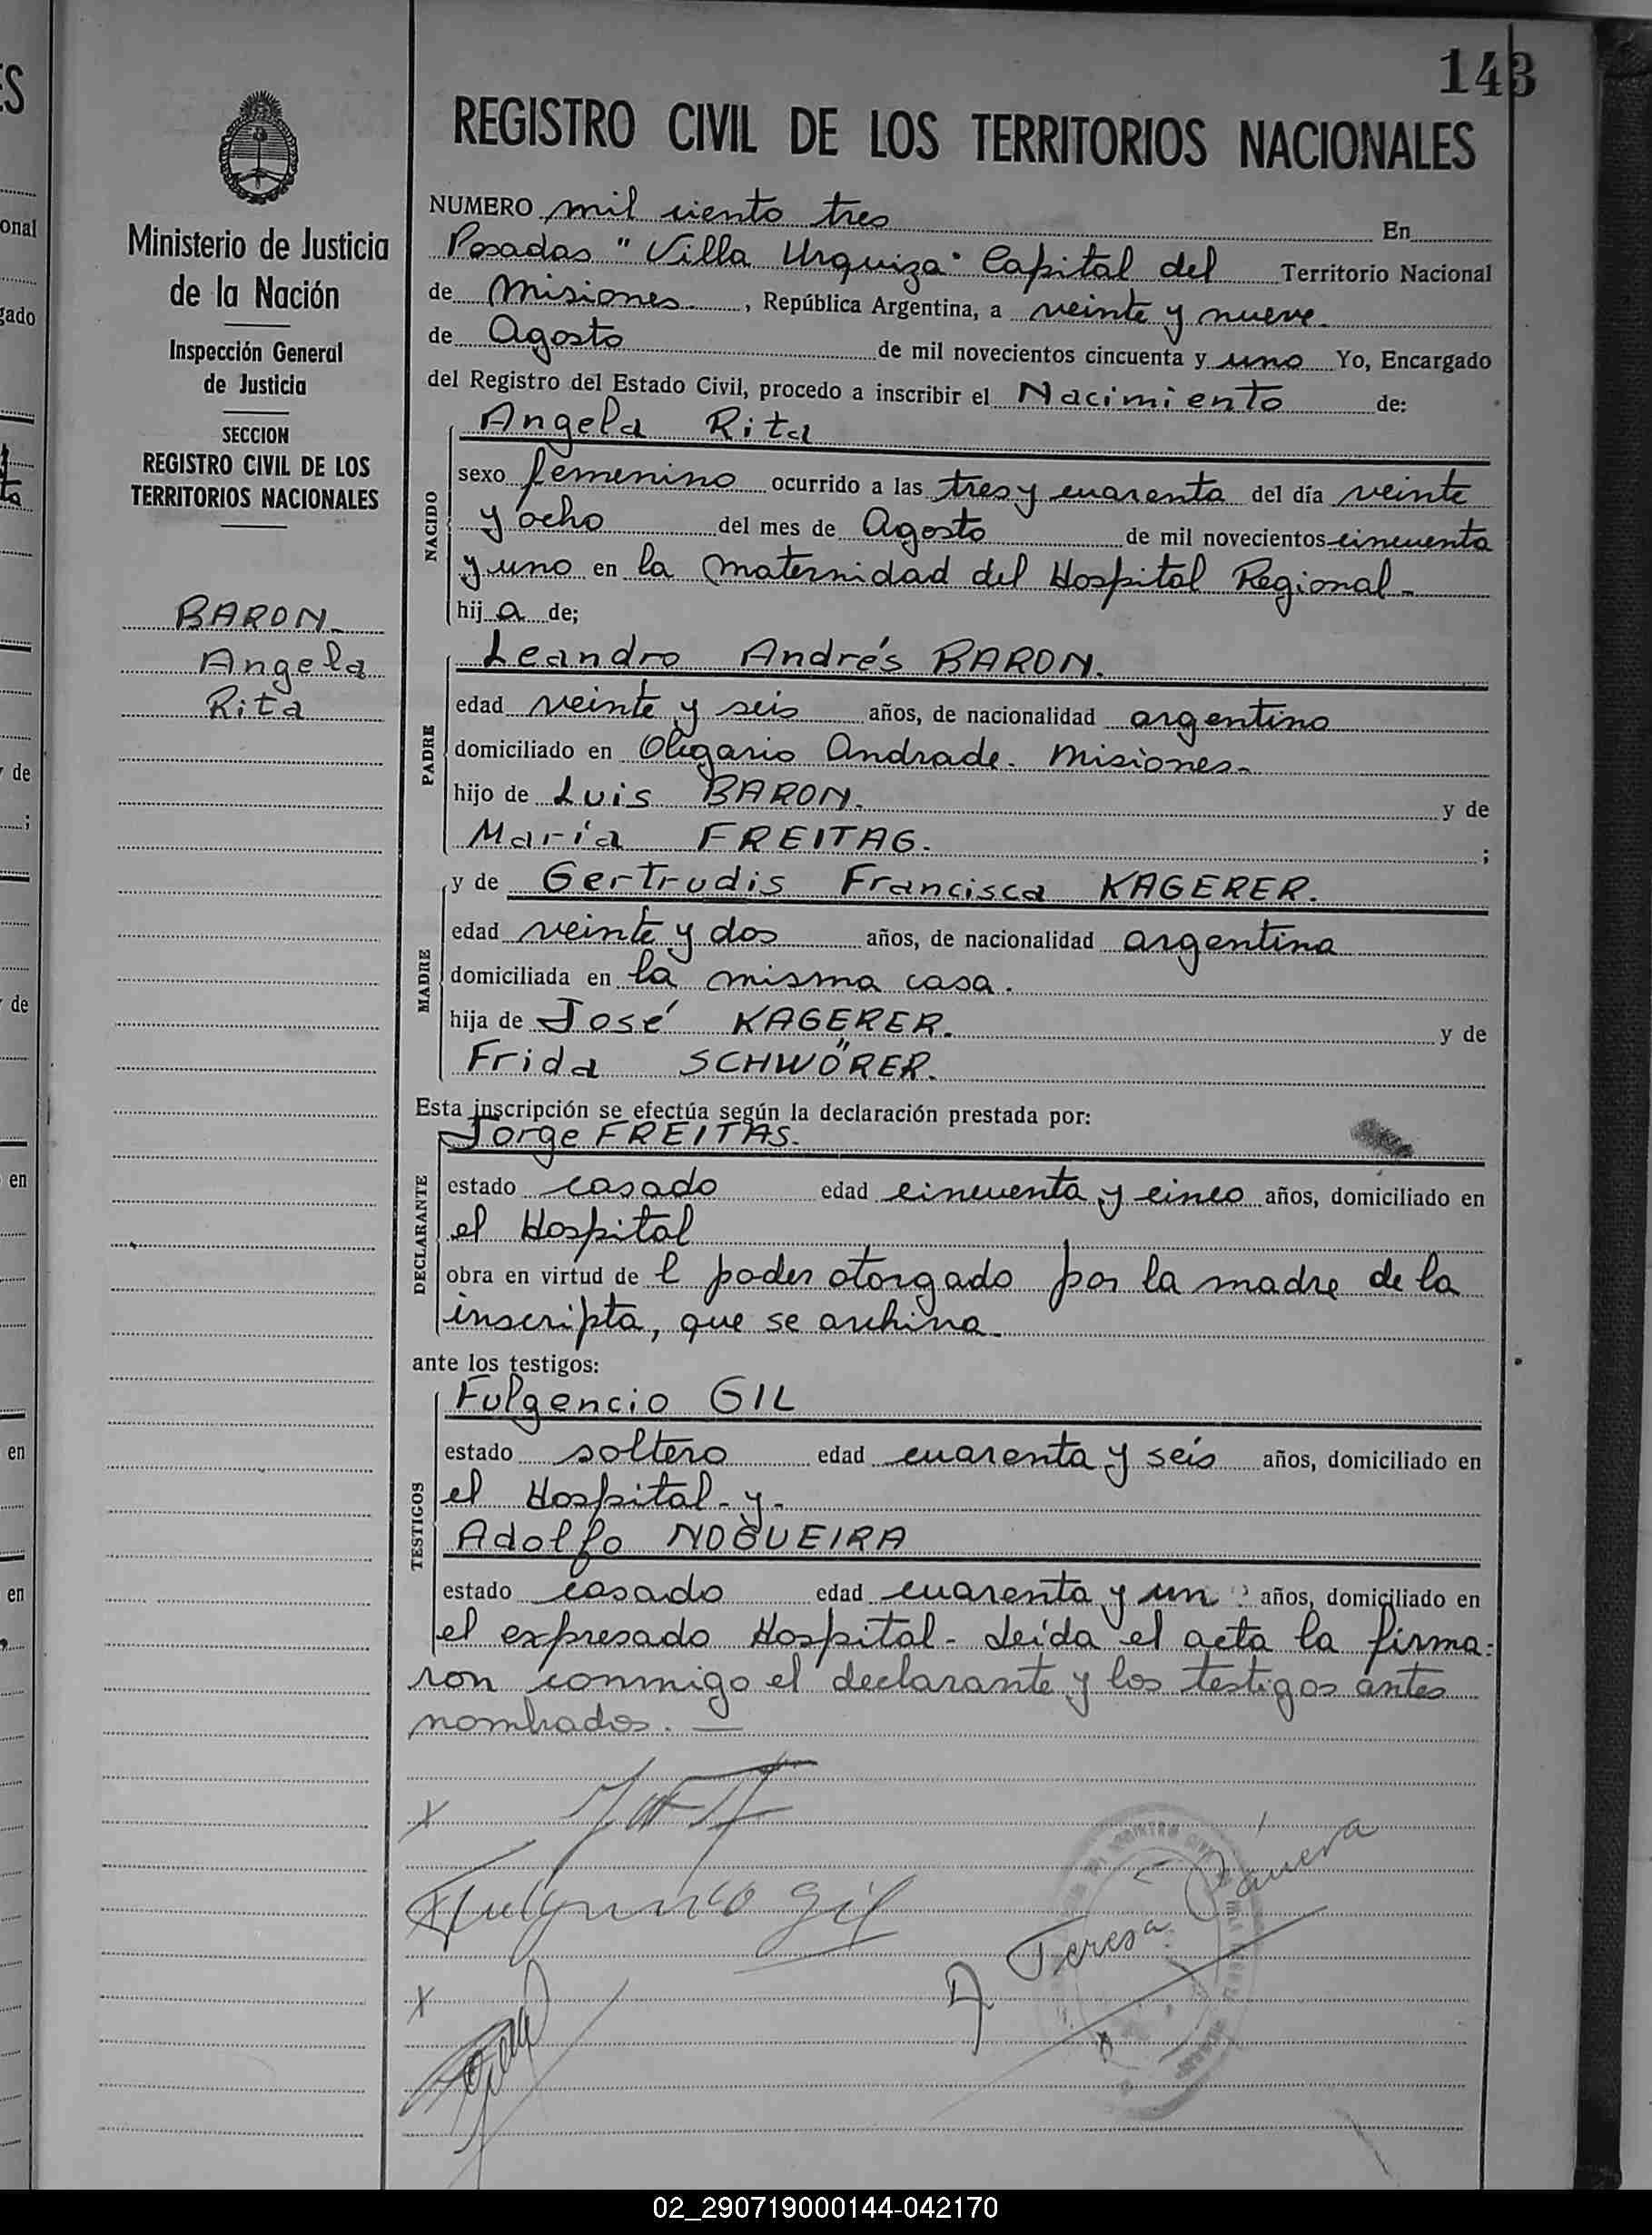 143
REGISTRO CIVIL DE LOS TERRITORIOS NACIONALES
Ministerio de Justicia
de la Nación
Inspección General
de Justicia
SECCION
REGISTRO CIVIL DE LOS
TERRITORIOS NACIONALES
BARON
Angela
Rita
NUMERO mil ciento tres En
Posadas "Villa Urquiza" Capital del Territorio Nacional
de Misiones, República Argentina, a veinte y nueve
de Agosto de mil novecientos cincuenta y uno Yo, Encargado
del Registro del Estado Civil, procedo a inscribir el Nacimiento de:
NACIDO
Angela Rita
sexo femenino ocurrido a las tres y cuarenta del día veinte
y ocho del mes de Agosto de mil novecientos cincuenta
y uno en la Maternidad del Hospital Regional-
hij a de;
PADRE
Leandro Andrés BARON.
edad veinte y seis años, de nacionalidad argentino
domiciliado en Olegario Andrade. Misiones-
hijo de Luis BARON. y de
María FREITAG. ;
MADRE
y de Gertrudis Francisca KAGERER.
edad veinte y dos años, de nacionalidad argentina
domiciliada en la misma casa.
hija de José KAGERER. y de
Frida SCHWÖRER.
Esta inscripción se efectúa según la declaración prestada por:
DECLARANTE
Jorge FREITAS.
estado casado edad cincuenta y cinco años, domiciliado en
el Hospital
obra en virtud de l poder otorgado por la madre de la
inscripta, que se archiva
ante los testigos:
TESTIGOS
Fulgencio GIL
estado soltero edad cuarenta y seis años, domiciliado en
el Hospital- y-
Adolfo NOGUEIRA
estado casado edad cuarenta y un años, domiciliado en
el expresado Hospital- Leída el acta la firma-
ron conmigo el declarante y los testigos antes
nombrados. —
Fulgencio Gil
Teresa
02_290719000144-042170